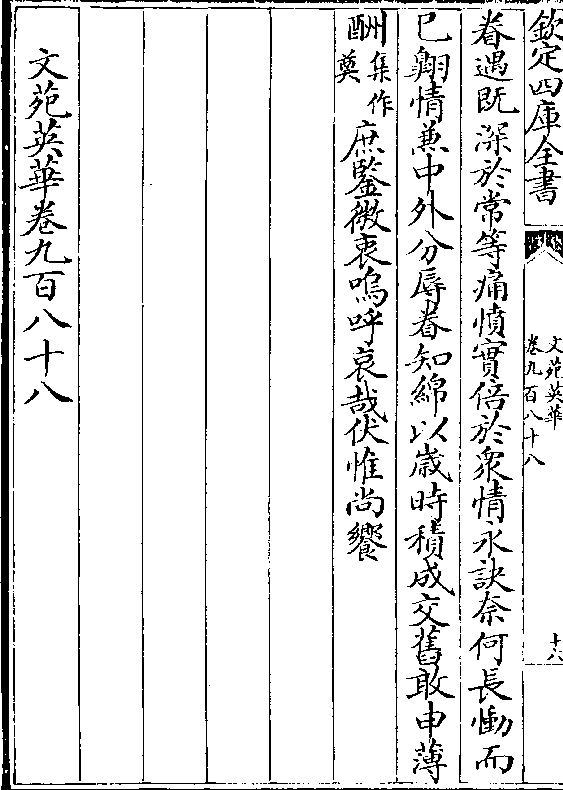 欽定四庫全書
文苑英華
卷九百八十八
十六
眷遇既深於常等痛憤實倍於衆情永訣奈何長慟而
已翺情兼中外分辱眷知綿以歲時積成交舊敢申薄
酬集作
奠
庶鑒微衷嗚呼哀哉伏惟尚饗
文苑英華卷九百八十八